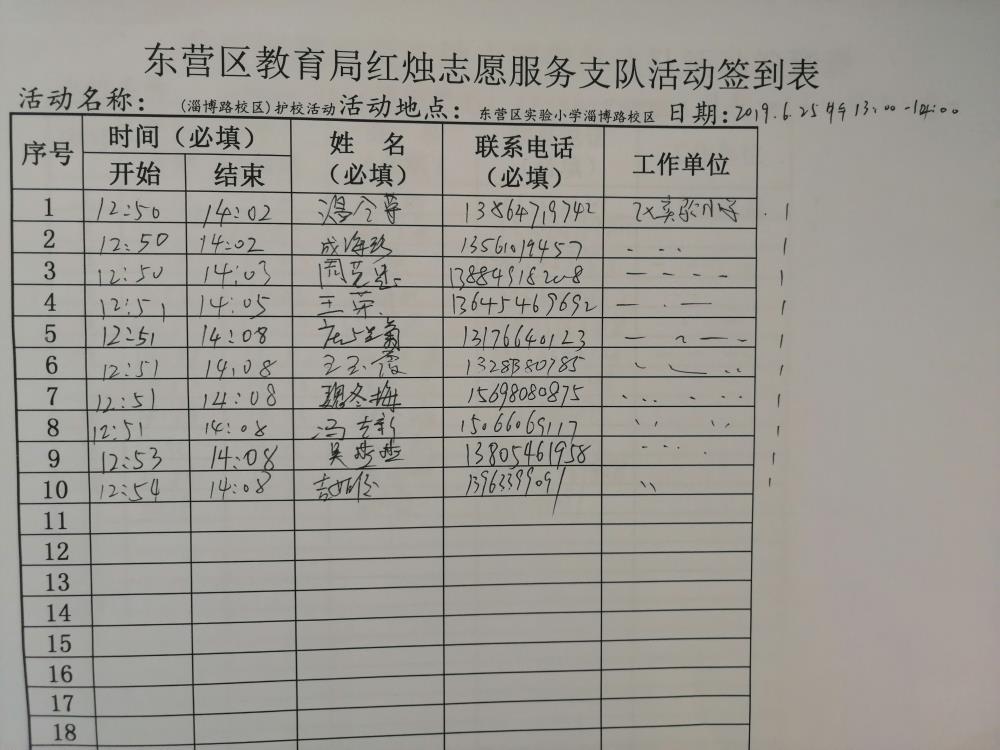 东营区教育局红烛志愿服务支队活动签到表
活动名称： (淄博路校区)护校活动 活动地点： 东营区实验小学淄博路校区 日期: 2019.6.25 13:00-14:00
序号 时间（必填） 姓 名（必填） 联系电话（必填） 工作单位
开始 结束
1 12:50 14:02 13864719742
2 12:50 14:02 成海珍 13561019457
3 12:50 14:03 13884918208
4 12:51 14:05 王荣 13645469692
5 12:51 14:08 13176640123
6 12:51 14:08
7 12:51 14:08 魏冬梅 15698080875
8 12:51 14:08 冯志新 15066069117
9 12:53 14:08 吴燕燕 13805461958
10 12:54 14:08 13963399091
11
12
13
14
15
16
17
18